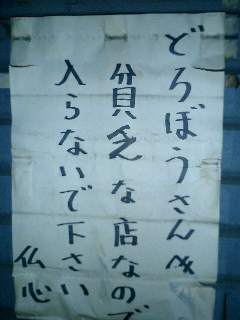 どろぼうさんへ
貧乏な店なので
入らないで下さい
仏心